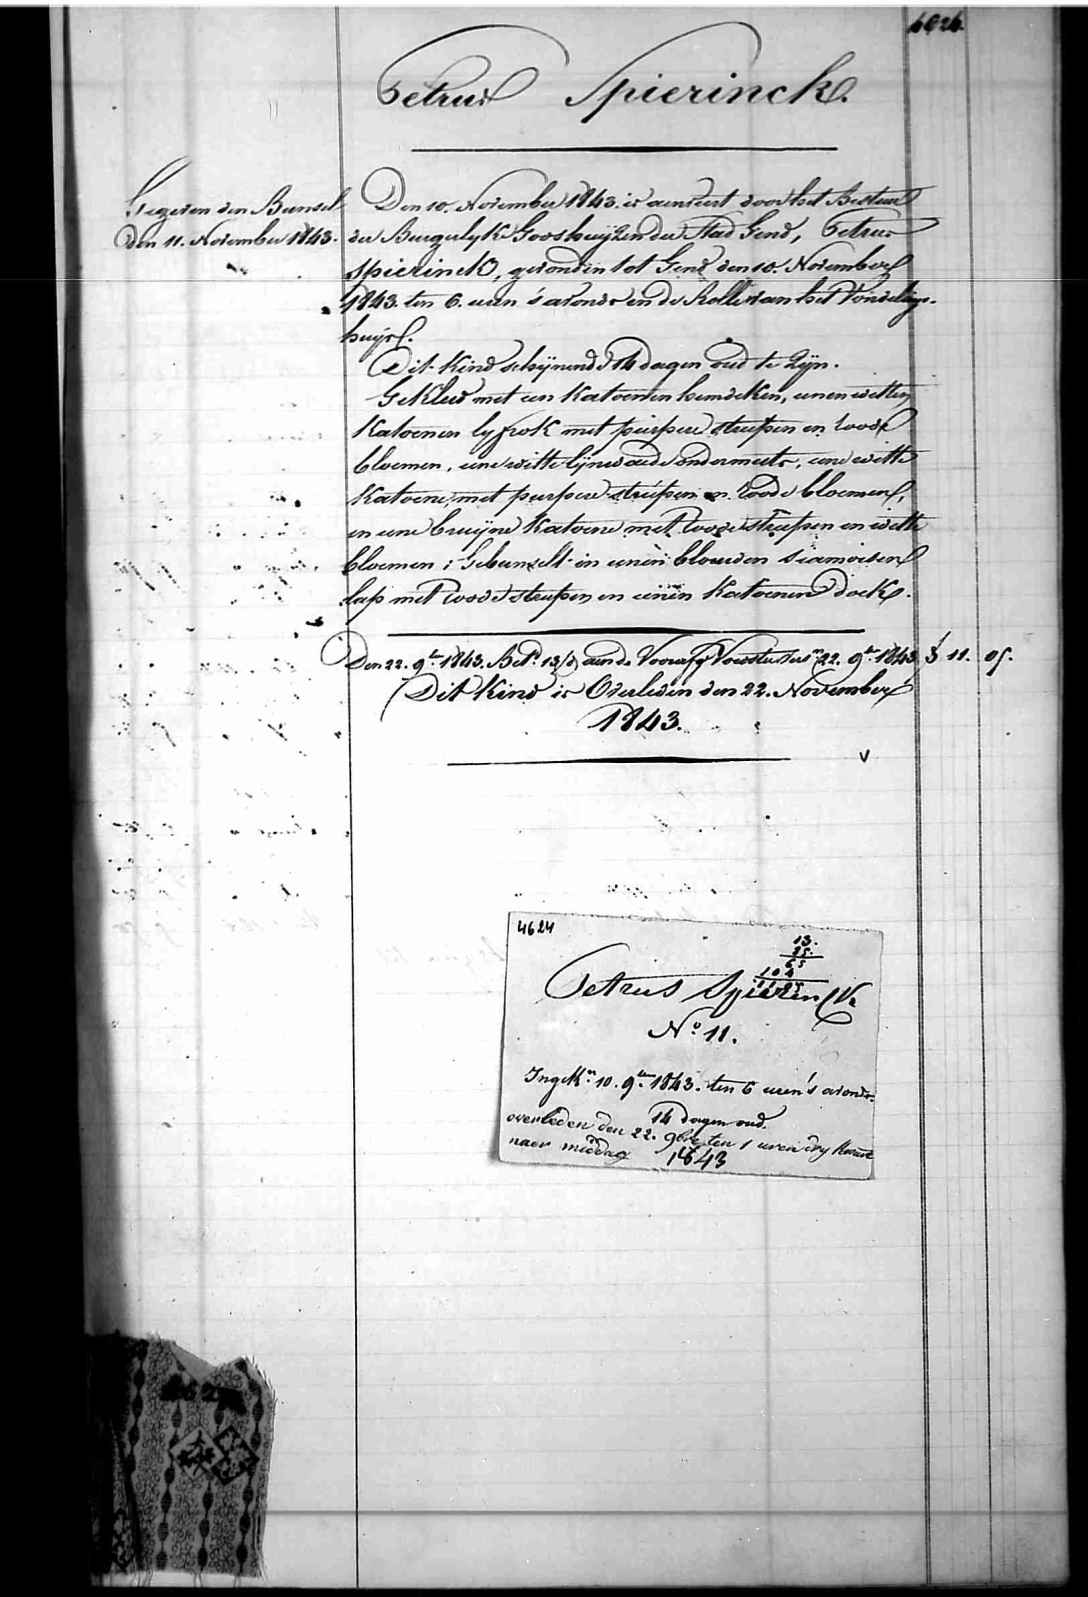 4624
Petrus Spierinck.
Gegeven den Bunsel
den 11. November 1843.
Den 10. November 1843. is aenveert door het Bestuur
der Burgerlyke Godshuijzen der Stad Gend, Petrus
Spierinck, gevonden tot Gend den 10. November
1843. ten 6. uren 's avonds in de Rolle van het Vondelings-
huijs.
Dit Kind schijnende 14 dagen oud te Zijn.
Gekleed met een Katoenen hemdeken, eenen witten
Katoenen lyfrok met purpere streepen en roode
bloemen, eene witte lijnwaede ondermuts, eene witte
Katoene, met purpere streepen en roode bloemen,
en eene bruijne Katoene met roode streepen en witte
bloemen; Gebunselt in eenen blauwen siamoisen
lap met roode streepen en eenen Katoenen doek.
Den 22. 9bre 1843. Bet. 13/d aen de Voorafg Voedster 22. 9bre 1843 f 11. 05.
Dit Kind is Overleden den 22. November
1843.
V
4624
13.
85.
65
104
11 05
Petrus Spierinck
No 11.
Ingek. 10. 9bre 1843. ten 6 uren 's avonds.
14 dagen oud.
overleden den 22. 9bre ten 1 uren dry kwart
naer middag 1843